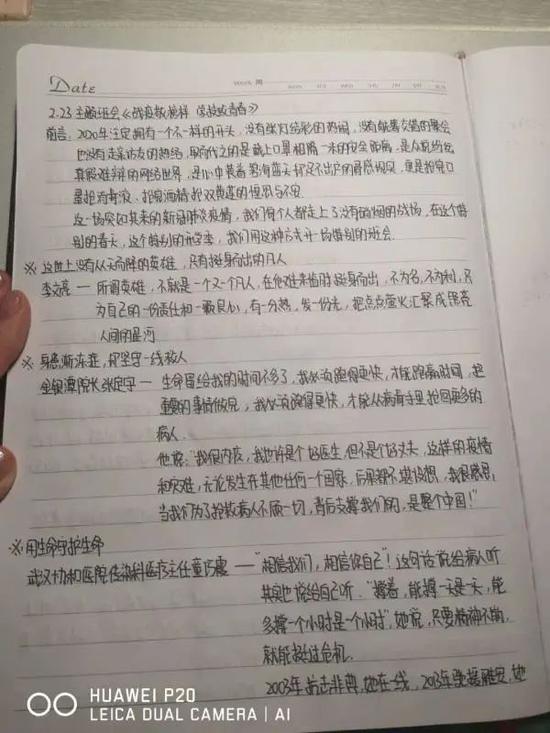 Date
Week 周
2.23 主题班会《战疫做榜样
前言: 2020年注定拥有一个不一样的开头, 没有张灯结彩的热闹, 没有觥筹交错的聚会
也没有走亲访友的热络, 取而代之的是戴上口罩相隔一米的安全距离, 是众说纷纭
真假难辨的网络世界,
这一场突如其来的新冠肺炎疫情, 我们每个人都走上了没有硝烟的战场, 在这个特
别的春天, 这个特别的开学季, 我们用这种方式开一场特别的班会
※ 这世上没有从天而降的英雄, 只有挺身而出的凡人
李文亮 — 所谓英雄, 不就是一个又一个凡人, 在危难来临时挺身而出, 不为名, 不为利, 只
为自己的一份责任和一颗良心, 有一分热, 发一份光, 把点点萤火汇聚成漂亮
人间的星河
※ 身患渐冻症, 仍坚守一线救人
金银潭院长张定宇 — 生命留给我的时间不多了, 我必须跑得更快, 才能跑赢时间, 把
重要的事情做完, 我必须跑得更快, 才能从病毒手里抢回更多的
病人.
他说: "我很内疚, 我也许是个好医生, 但不是个好丈夫, 这样的疫情
和灾难, 无论发生在其他任何一个国家, 后果都不堪设想, 我很感恩,
当我们为了抢救病人不顾一切, 背后支撑我们的, 是整个中国!"
※ 用生命守护生命
武汉协和医院传染科医疗主任 — "相信我们, 相信你自己"! 这句话说给病人听
其实也说给自己听. "撑着, 能撑一天是一天, 能
多撑一个小时是一个小时" 她说, 只要精神不垮,
就能挺过危机.
2003年抗击非典, 她在一线, 2013年
HUAWEI P20
LEICA DUAL CAMERA | AI